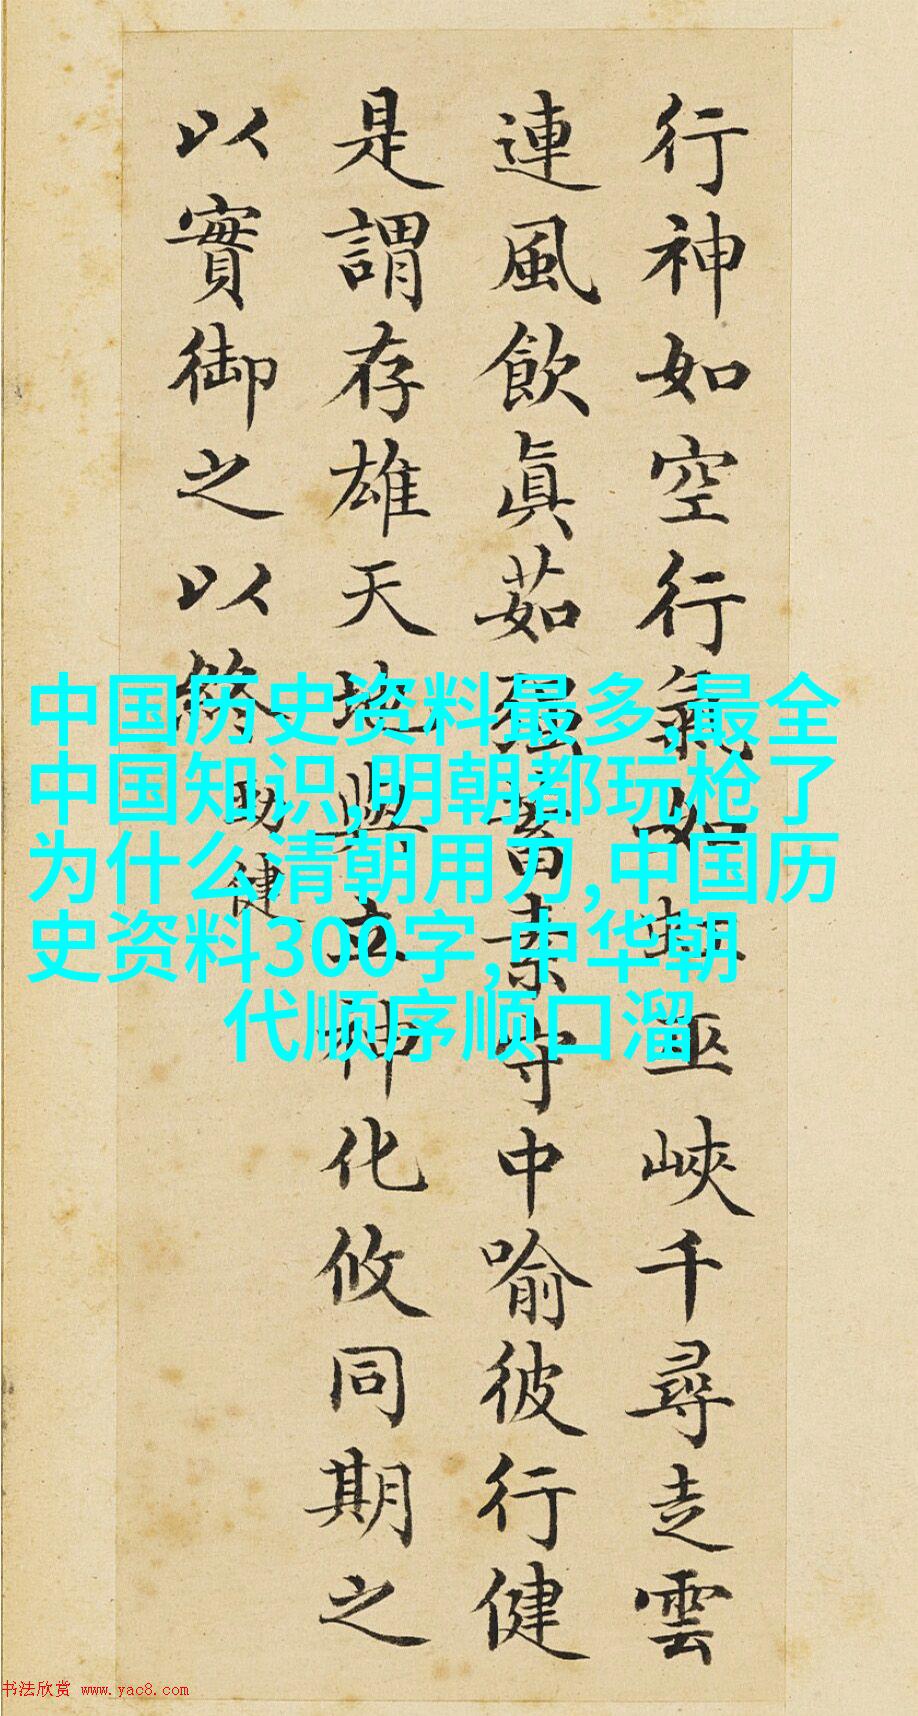 行神如空行氣如虹巫峽千尋走雲
連風飲眞茹强蓄素守中喻彼行健
是謂存雄天地與立神化攸同期之
以實御之以終 勁健
中国历史资料最多,最全
中国知识,明朝都玩枪了
为什么清朝用刀,中国历
史资料300字,中华朝
代顺序顺口溜
书法欣赏 www.yac8.com